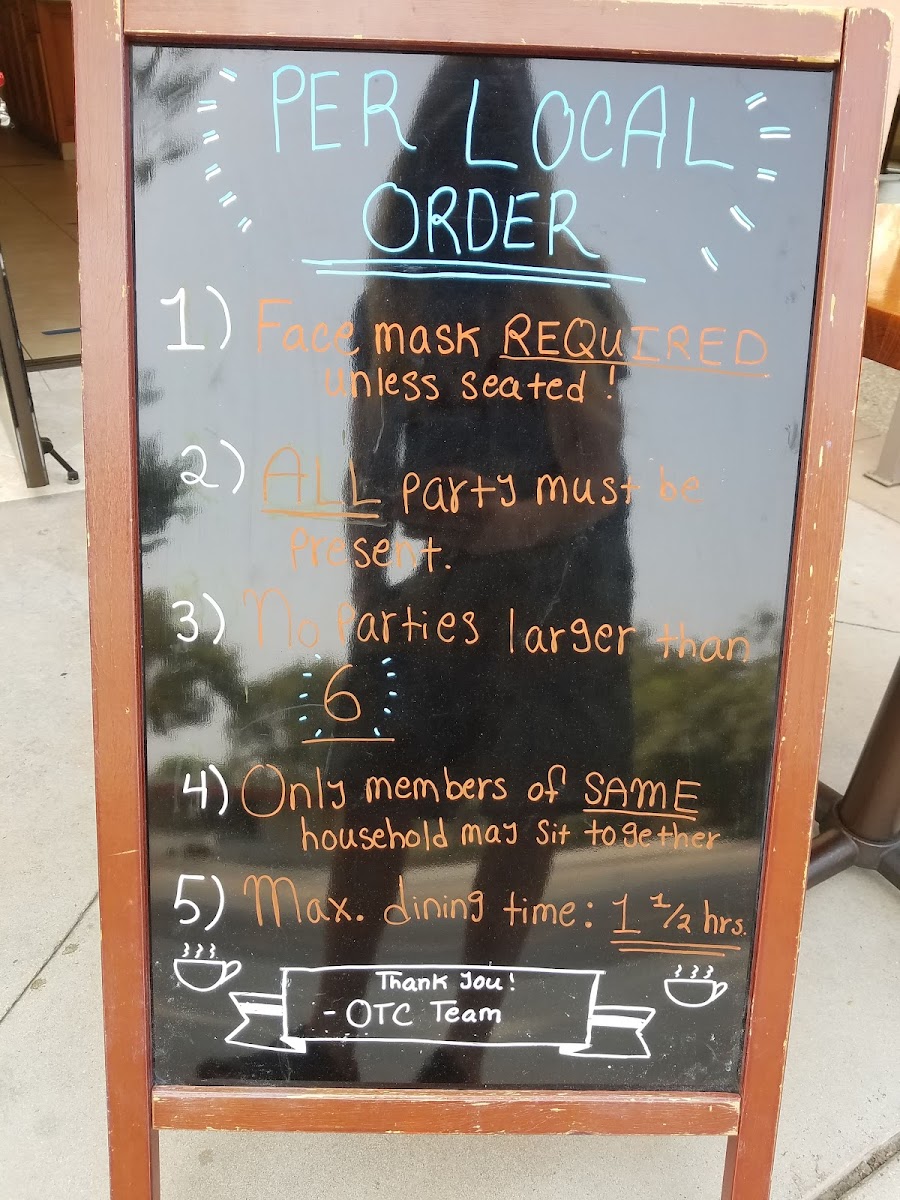 PER LOCAL
ORDER
1) Face mask REQUIRED
unless seated!
2) ALL party must be
present.
3) No Parties larger than
6
4) Only members of SAME
household may sit together
5) Max. dining time: 1 1/2 hrs.
Thank you!
- OTC Team